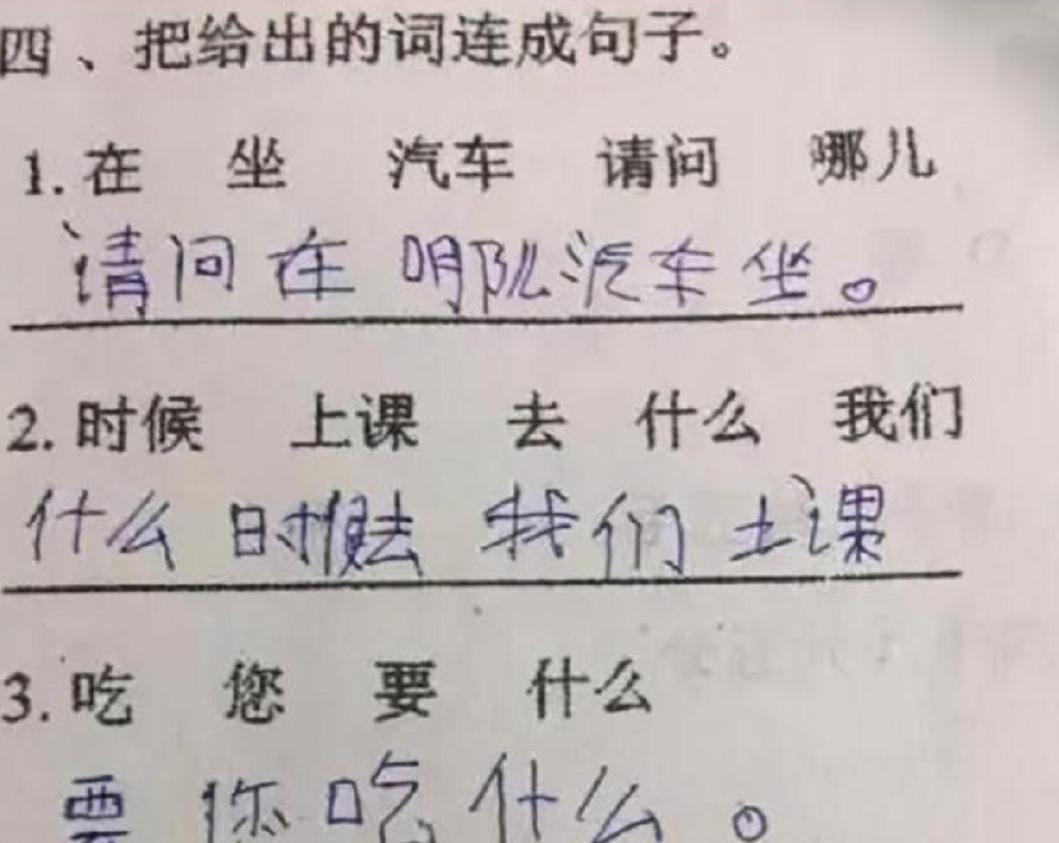 四、把给出的词连成句子。
1. 在 坐 汽车 请问 哪儿
请问在哪儿汽车坐。
2. 时候 上课 去 什么 我们
什么时候去我们上课
3. 吃 您 要 什么
要您吃什么。